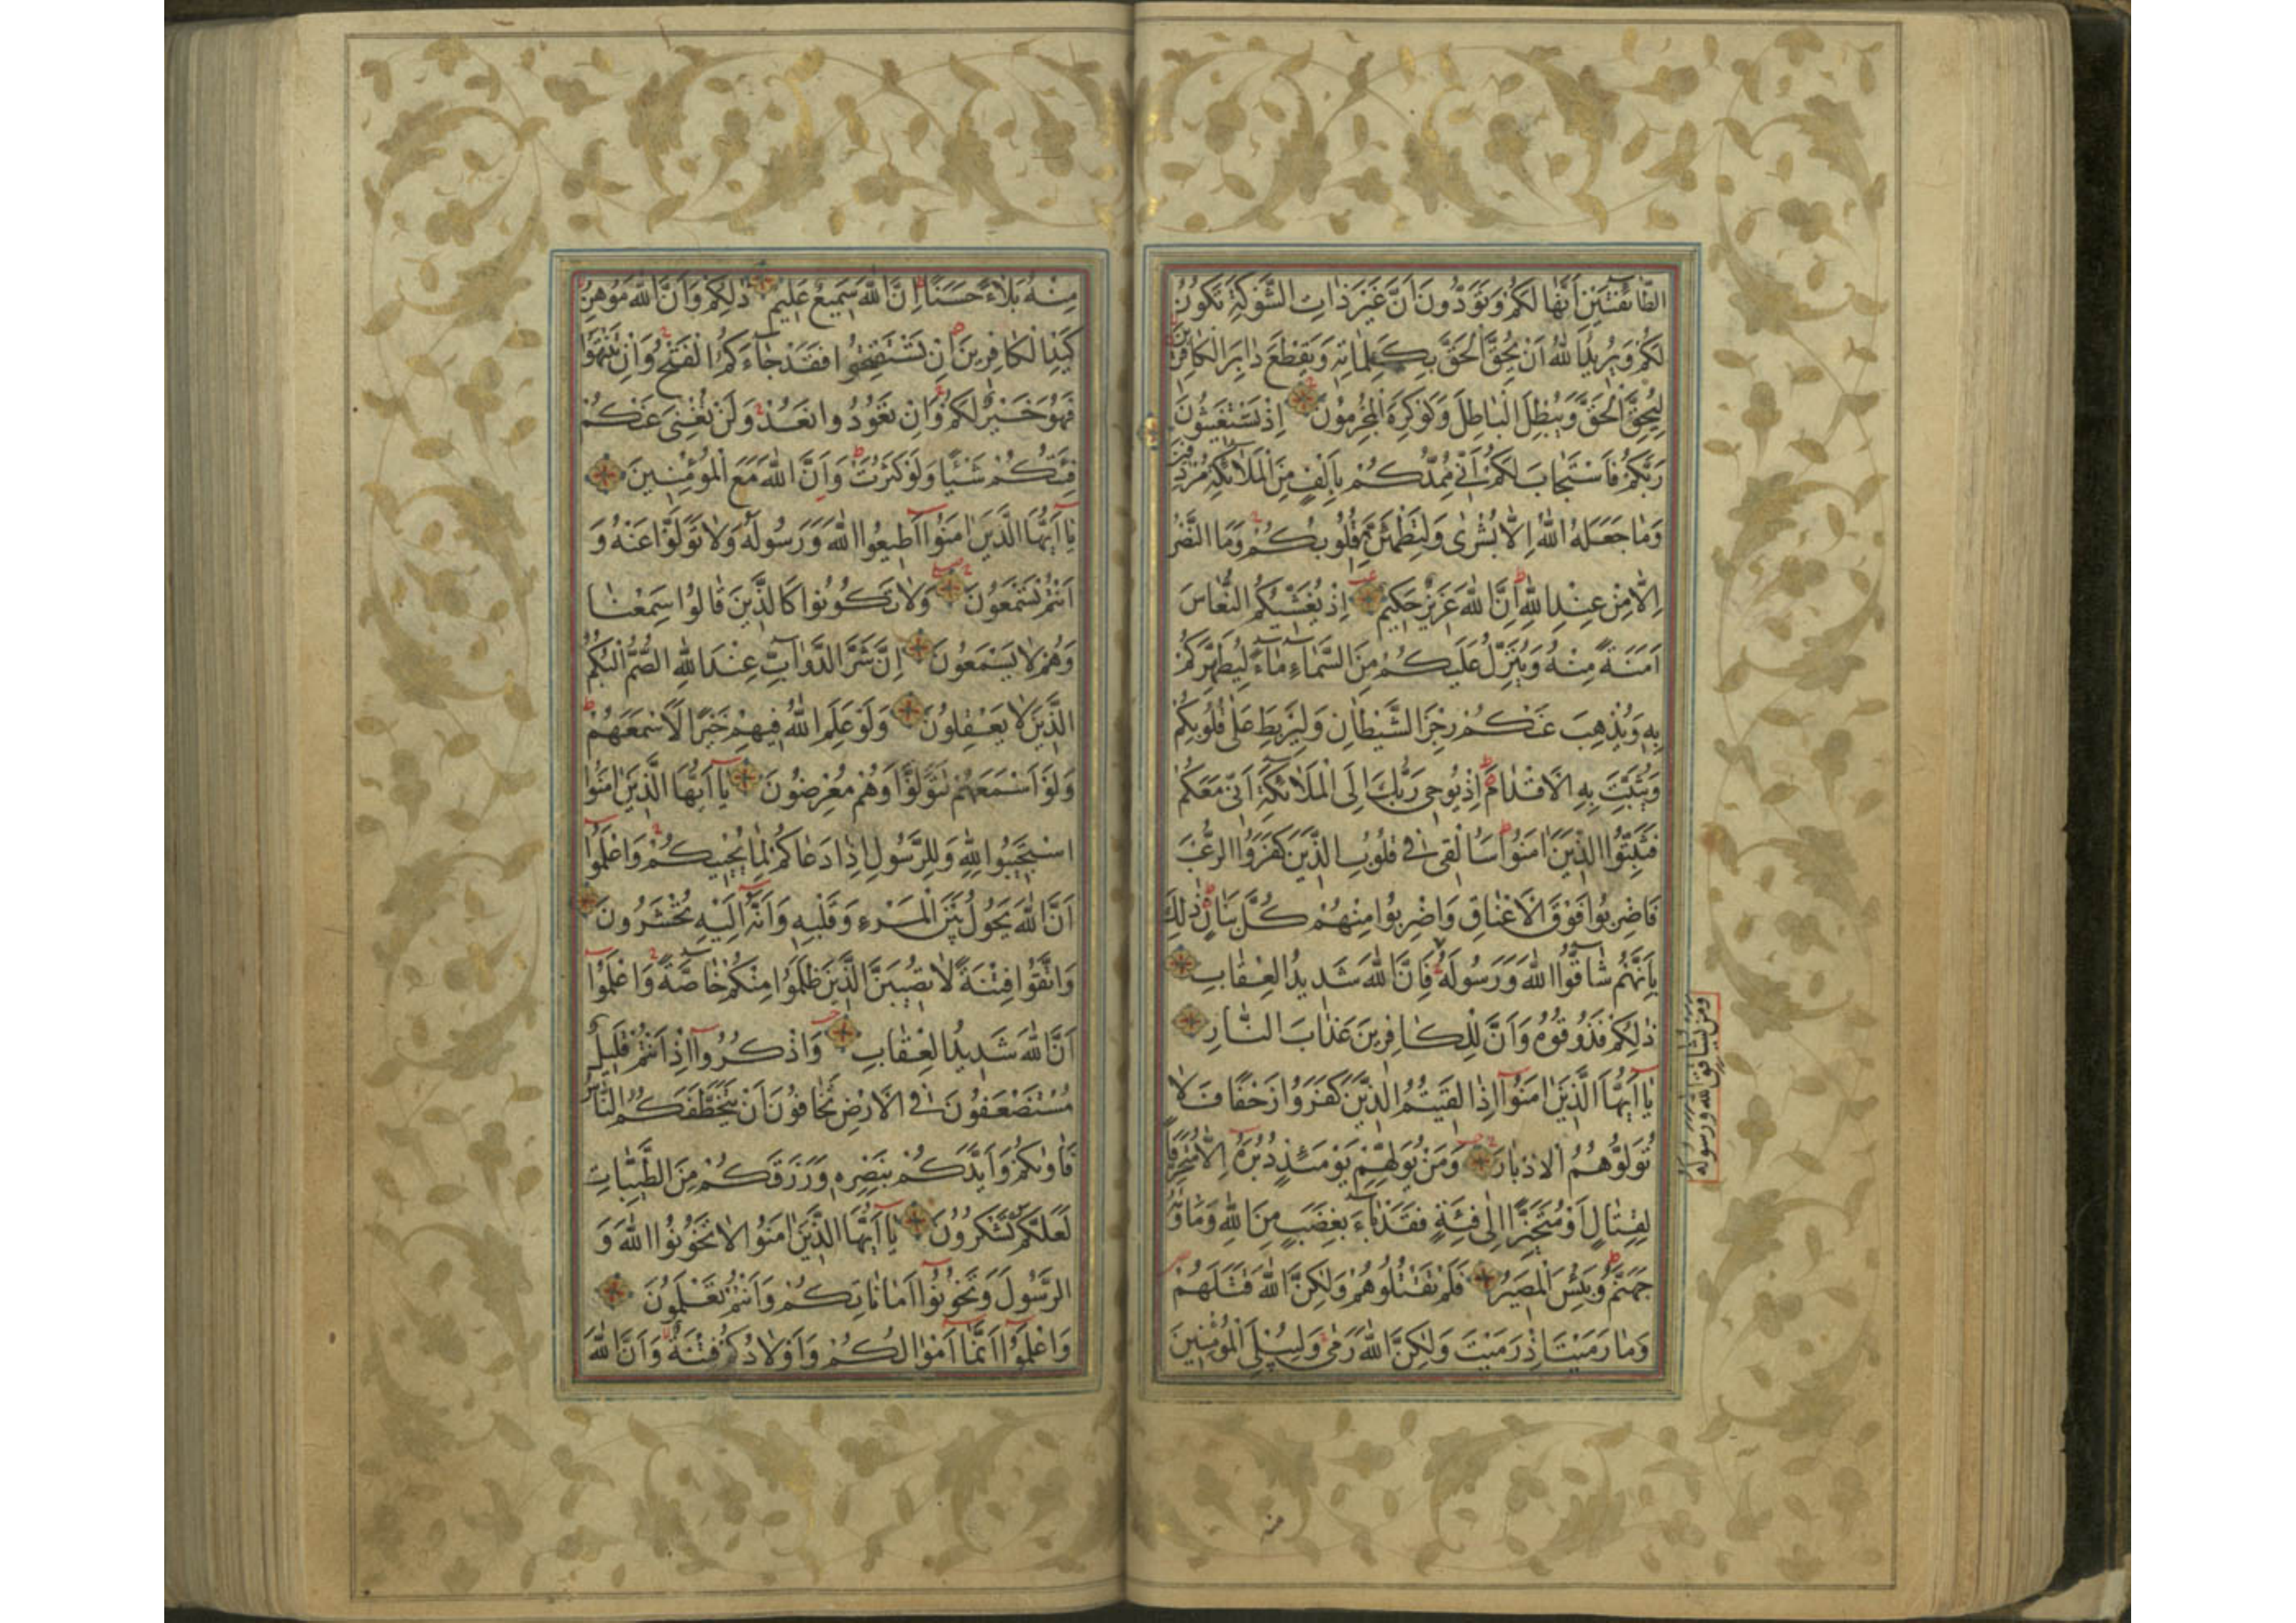 الطَّائِفَتَيْنِ أَنَّهَا لَكُمْ وَتَوَدُّونَ أَنَّ غَيْرَ ذَاتِ الشَّوْكَةِ تَكُونُ
لَكُمْ وَيُرِيدُ اللّٰهُ أَنْ يُحِقَّ الْحَقَّ بِكَلِمَاتِهِ وَيَقْطَعَ دَابِرَ الْكَافِرِينَ
لِيُحِقَّ الْحَقَّ وَيُبْطِلَ الْبَاطِلَ وَلَوْ كَرِهَ الْمُجْرِمُونَ إِذْ تَسْتَغِيثُونَ
رَبَّكُمْ فَاسْتَجَابَ لَكُمْ أَنِّي مُمِدُّكُمْ بِأَلْفٍ مِنَ الْمَلَائِكَةِ مُرْدِفِينَ
وَمَا جَعَلَهُ اللّٰهُ إِلَّا بُشْرَى وَلِتَطْمَئِنَّ بِهِ قُلُوبُكُمْ وَمَا النَّصْرُ
إِلَّا مِنْ عِنْدِ اللّٰهِ إِنَّ اللّٰهَ عَزِيزٌ حَكِيمٌ إِذْ يُغَشِّيكُمُ النُّعَاسَ
أَمَنَةً مِنْهُ وَيُنَزِّلُ عَلَيْكُمْ مِنَ السَّمَاءِ مَاءً لِيُطَهِّرَكُمْ
بِهِ وَيُذْهِبَ عَنْكُمْ رِجْزَ الشَّيْطَانِ وَلِيَرْبِطَ عَلَى قُلُوبِكُمْ
وَيُثَبِّتَ بِهِ الْأَقْدَامَ إِذْ يُوحِي رَبُّكَ إِلَى الْمَلَائِكَةِ أَنِّي مَعَكُمْ
فَثَبِّتُوا الَّذِينَ آمَنُوا سَأُلْقِي فِي قُلُوبِ الَّذِينَ كَفَرُوا الرُّعْبَ
فَاضْرِبُوا فَوْقَ الْأَعْنَاقِ وَاضْرِبُوا مِنْهُمْ كُلَّ بَنَانٍ ذٰلِكَ
بِأَنَّهُمْ شَاقُّوا اللّٰهَ وَرَسُولَهُ فَإِنَّ اللّٰهَ شَدِيدُ الْعِقَابِ
ذٰلِكُمْ فَذُوقُوهُ وَأَنَّ لِلْكَافِرِينَ عَذَابَ النَّارِ
يَا أَيُّهَا الَّذِينَ آمَنُوا إِذَا لَقِيتُمُ الَّذِينَ كَفَرُوا زَحْفًا فَلَا
تُوَلُّوهُمُ الْأَدْبَارَ وَمَنْ يُوَلِّهِمْ يَوْمَئِذٍ دُبُرَهُ إِلَّا مُتَحَرِّفًا
لِقِتَالٍ أَوْ مُتَحَيِّزًا إِلَى فِئَةٍ فَقَدْ بَاءَ بِغَضَبٍ مِنَ اللّٰهِ وَمَأْوٰهُ
جَهَنَّمُ وَبِئْسَ الْمَصِيرُ فَلَمْ تَقْتُلُوهُمْ وَلٰكِنَّ اللّٰهَ قَتَلَهُمْ
وَمَا رَمَيْتَ إِذْ رَمَيْتَ وَلٰكِنَّ اللّٰهَ رَمَى وَلِيُبْلِيَ الْمُؤْمِنِينَ
وَمَنْ يُشَاقِقِ اللّٰهَ وَرَسُولَهُ
منه
مِنْهُ بَلَاءً حَسَنًا إِنَّ اللّٰهَ سَمِيعٌ عَلِيمٌ ذٰلِكُمْ وَأَنَّ اللّٰهَ مُوهِنُ
كَيْدِ الْكَافِرِينَ إِنْ تَسْتَفْتِحُوا فَقَدْ جَاءَكُمُ الْفَتْحُ وَإِنْ تَنْتَهُوا
فَهُوَ خَيْرٌ لَكُمْ وَإِنْ تَعُودُوا نَعُدْ وَلَنْ تُغْنِيَ عَنْكُمْ
فِئَتُكُمْ شَيْئًا وَلَوْ كَثُرَتْ وَأَنَّ اللّٰهَ مَعَ الْمُؤْمِنِينَ
يَا أَيُّهَا الَّذِينَ آمَنُوا أَطِيعُوا اللّٰهَ وَرَسُولَهُ وَلَا تَوَلَّوْا عَنْهُ وَ
أَنْتُمْ تَسْمَعُونَ وَلَا تَكُونُوا كَالَّذِينَ قَالُوا سَمِعْنَا
وَهُمْ لَا يَسْمَعُونَ إِنَّ شَرَّ الدَّوَابِّ عِنْدَ اللّٰهِ الصُّمُّ الْبُكْمُ
الَّذِينَ لَا يَعْقِلُونَ وَلَوْ عَلِمَ اللّٰهُ فِيهِمْ خَيْرًا لَأَسْمَعَهُمْ
وَلَوْ أَسْمَعَهُمْ لَتَوَلَّوْا وَهُمْ مُعْرِضُونَ يَا أَيُّهَا الَّذِينَ آمَنُوا
اسْتَجِيبُوا لِلّٰهِ وَلِلرَّسُولِ إِذَا دَعَاكُمْ لِمَا يُحْيِيكُمْ وَاعْلَمُوا
أَنَّ اللّٰهَ يَحُولُ بَيْنَ الْمَرْءِ وَقَلْبِهِ وَأَنَّهُ إِلَيْهِ تُحْشَرُونَ
وَاتَّقُوا فِتْنَةً لَا تُصِيبَنَّ الَّذِينَ ظَلَمُوا مِنْكُمْ خَاصَّةً وَاعْلَمُوا
أَنَّ اللّٰهَ شَدِيدُ الْعِقَابِ وَاذْكُرُوا إِذْ أَنْتُمْ قَلِيلٌ
مُسْتَضْعَفُونَ فِي الْأَرْضِ تَخَافُونَ أَنْ يَتَخَطَّفَكُمُ النَّاسُ
فَآوٰيكُمْ وَأَيَّدَكُمْ بِنَصْرِهِ وَرَزَقَكُمْ مِنَ الطَّيِّبَاتِ
لَعَلَّكُمْ تَشْكُرُونَ يَا أَيُّهَا الَّذِينَ آمَنُوا لَا تَخُونُوا اللّٰهَ وَ
الرَّسُولَ وَتَخُونُوا أَمَانَاتِكُمْ وَأَنْتُمْ تَعْلَمُونَ
وَاعْلَمُوا أَنَّمَا أَمْوَالُكُمْ وَأَوْلَادُكُمْ فِتْنَةٌ وَأَنَّ اللّٰهَ